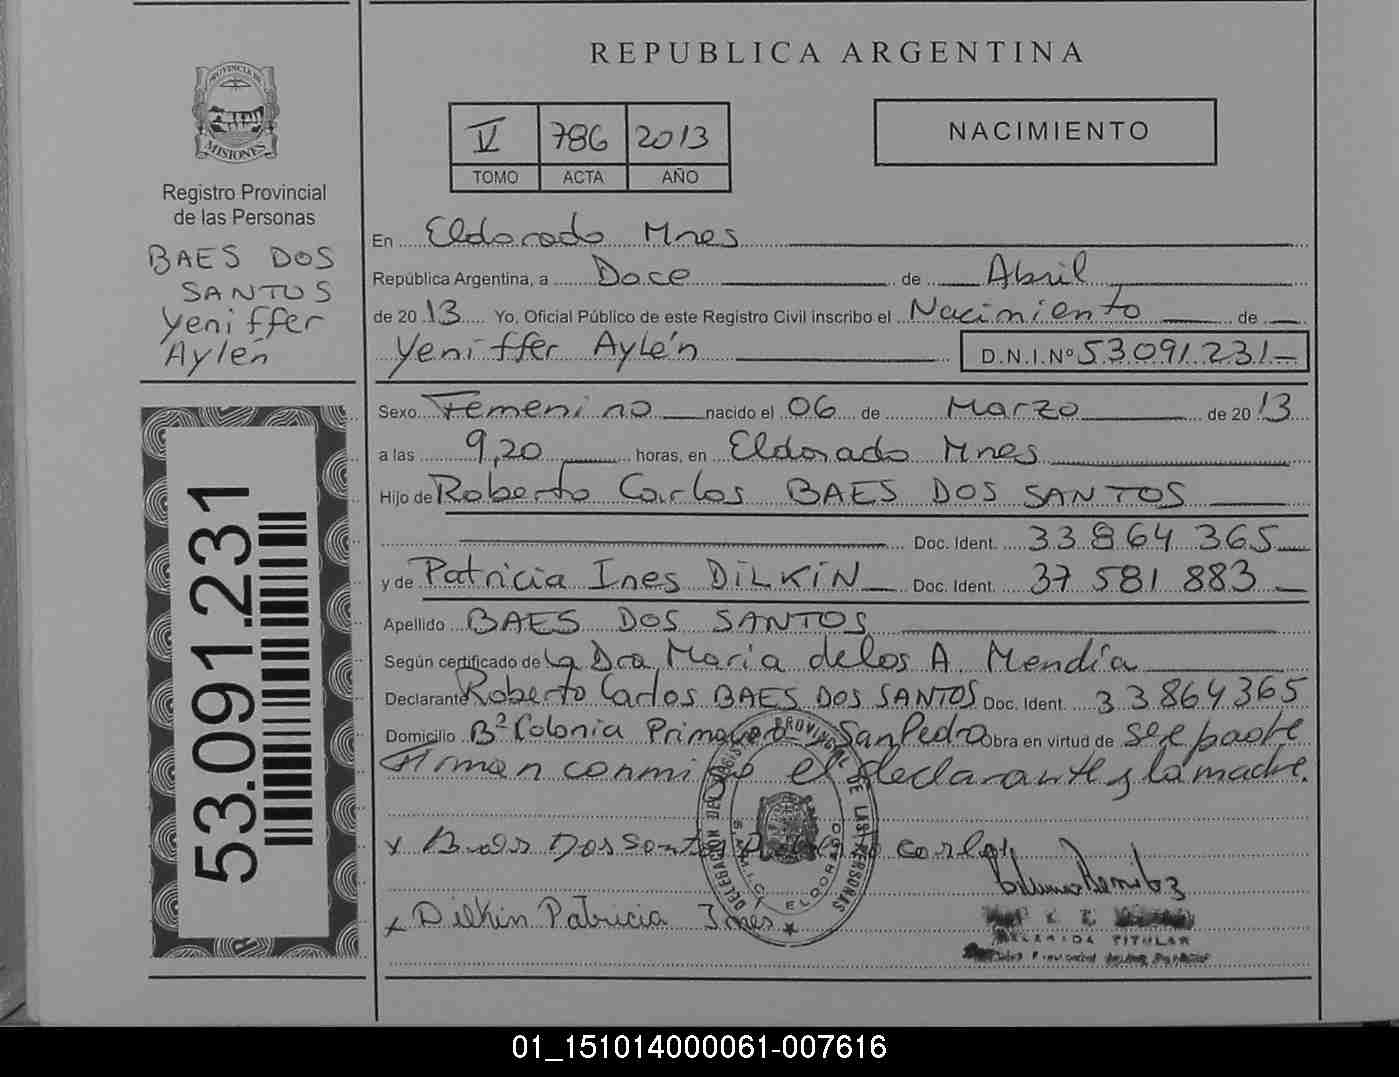 REPUBLICA ARGENTINA
PROVINCIA DE
MISIONES
Registro Provincial
de las Personas
BAES DOS
SANTOS
Yeniffer
Aylén
53.091.231
V 786 2013
TOMO ACTA AÑO
NACIMIENTO
En Eldorado Mnes
República Argentina, a Doce de Abril
de 2013 Yo, Oficial Público de este Registro Civil inscribo el Nacimiento de
Yeniffer Aylén D.N.I.Nº 53.091.231
Sexo Femenino nacido el 06 de Marzo de 2013
a las 9,20 horas, en Eldorado Mnes
Hijo de Roberto Carlos BAES DOS SANTOS
Doc. Ident. 33 864 365
y de Patricia Ines DILKIN Doc. Ident. 37 581 883
Apellido BAES DOS SANTOS
Según certificado de la Dra Maria delos A. Mendía
Declarante Roberto Carlos BAES DOS SANTOS Doc. Ident. 33864365
Domicilio Bº Colonia Primavera San Pedro Obra en virtud de
Firman conmigo el declarante y la madre.
x Baes Dos Santos carlos
x Dilkin Patricia Ines
TITULAR
01_151014000061-007616